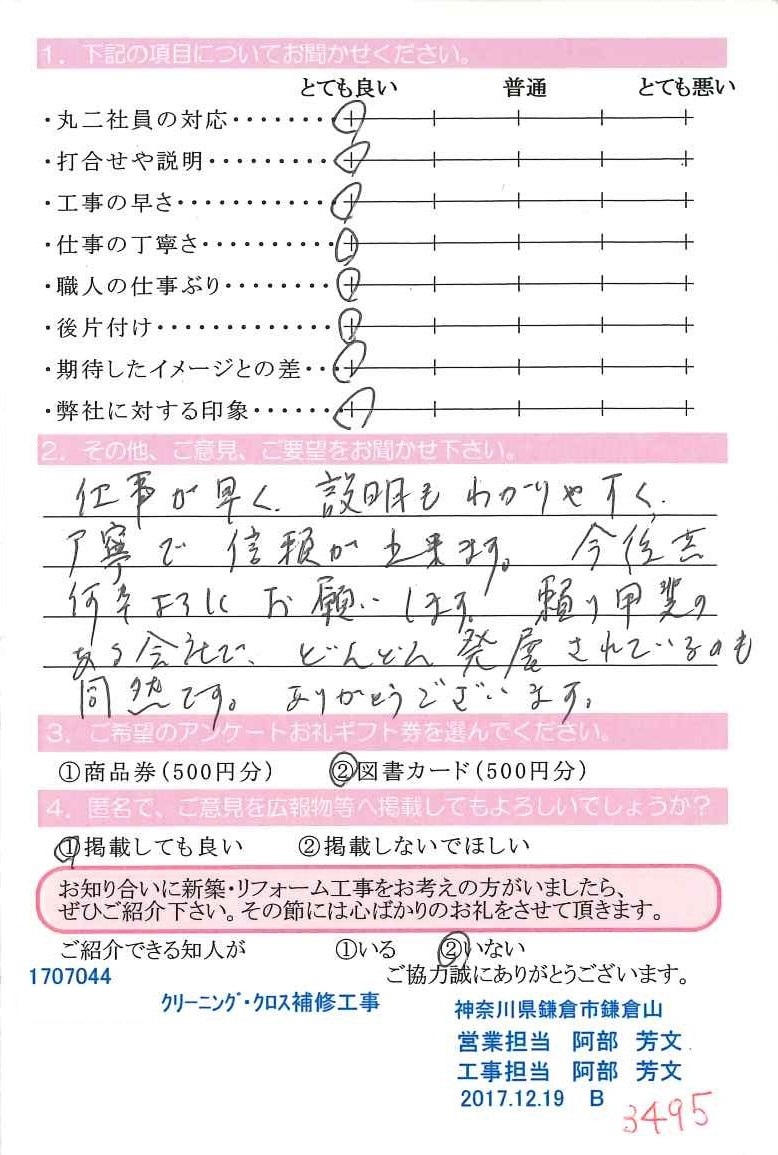 1. 下記の項目についてお聞かせください。
とても良い 普通 とても悪い
・丸二社員の対応・・・・・・・・
・打合せや説明・・・・・・・・・
・工事の早さ・・・・・・・・・・・
・仕事の丁寧さ・・・・・・・・・
・職人の仕事ぶり・・・・・・・・
・後片付け・・・・・・・・・・・・・
・期待したイメージとの差・・・
・弊社に対する印象・・・・・・
2. その他、ご意見、ご要望をお聞かせ下さい。
仕事が早く、説明もわかりやすく、
丁寧で信頼が出来ます。 今後共
何卒よろしくお願いします。 頼り甲斐の
ある会社で、どんどん発展されているのも
同然です。 ありがとうございます。
3. ご希望のアンケートお礼ギフト券を選んでください。
①商品券(500円分) ②図書カード(500円分)
4. 匿名で、ご意見を広報物等へ掲載してもよろしいでしょうか?
①掲載しても良い ②掲載しないでほしい
お知り合いに新築・リフォーム工事をお考えの方がいましたら、
ぜひご紹介下さい。その節には心ばかりのお礼をさせて頂きます。
ご紹介できる知人が ①いる ②いない
1707044 ご協力誠にありがとうございます。
クリーニング・クロス補修工事 神奈川県鎌倉市鎌倉山
営業担当 阿部 芳文
工事担当 阿部 芳文
2017.12.19 B
3495